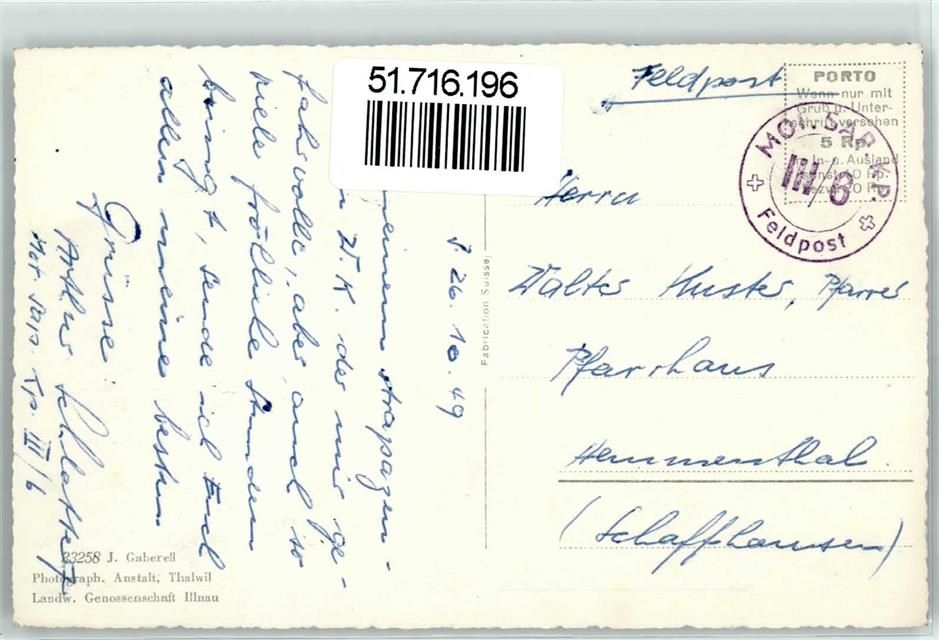 51.716.196
Feldpost
PORTO
Wenn nur mit
Gruß u. Unter-
schrift versehen
5 Rp.
In- u. Ausland
sonst 10 Rp.
bezw. 20 Rp.
MOT. SAP. KP.
III/6
Feldpost
Herrn
Walter Huster, Pfarrer
Pfarrhaus
Hemmenthal.
(Schaffhausen)
Fabrication Suisse
26. 10. 49
meinem strapazen-
W.K. der mir ge-
fahrvolle, aber auch so
viele fröhliche Stunden
bringt, sende ich Euch
allen meine besten
Grüsse:
Arthur Schlatter
Mot. Sap. Kp. III/6
23258 J. Gaberell
Photograph. Anstalt, Thalwil
Landw. Genossenschaft Illnau